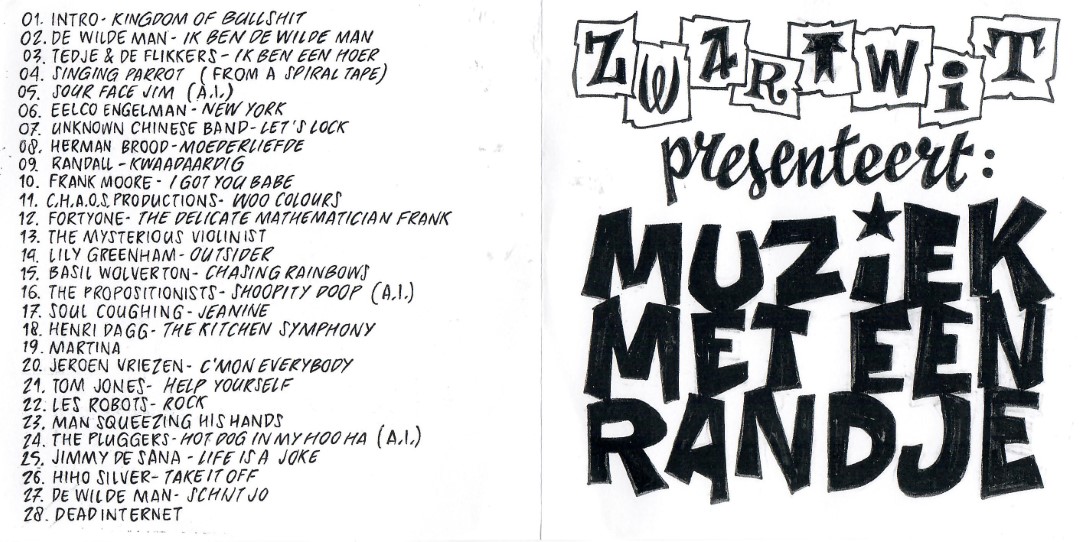 01. INTRO - KINGDOM OF BULLSHIT
02. DE WILDE MAN - IK BEN DE WILDE MAN
03. TEDJE & DE FLIKKERS - IK BEN EEN HOER
04. SINGING PARROT (FROM A SPIRAL TAPE)
05. SOUR FACE JIM (A.I.)
06. EELCO ENGELMAN - NEW YORK
07. UNKNOWN CHINESE BAND - LET'S LOCK
08. HERMAN BROOD - MOEDERLIEFDE
09. RANDALL - KWAADAARDIG
10. FRANK MOORE - I GOT YOU BABE
11. C.H.A.O.S. PRODUCTIONS - WOO COLOURS
12. FORTYONE - THE DELICATE MATHEMATICIAN FRANK
13. THE MYSTERIOUS VIOLINIST
14. LILY GREENHAM - OUTSIDER
15. BASIL WOLVERTON - CHASING RAINBOWS
16. THE PROPOSITIONISTS - SHOOPITY DOOP (A.I.)
17. SOUL COUGHING - JEANINE
18. HENRI DAGG - THE KITCHEN SYMPHONY
19. MARTINA
20. JEROEN VRIEZEN - C'MON EVERYBODY
21. TOM JONES - HELP YOURSELF
22. LES ROBOTS - ROCK
23. MAN SQUEEZING HIS HANDS
24. THE PLUGGERS - HOT DOG IN MY HOO HA (A.I.)
25. JIMMY DE SANA - LIFE IS A JOKE
26. HIHO SILVER - TAKE IT OFF
27. DE WILDE MAN - SCHIJT JO
28. DEAD INTERNET
ZWARTWIT
presenteert:
MUZiEK
MET EEN
RANDJE